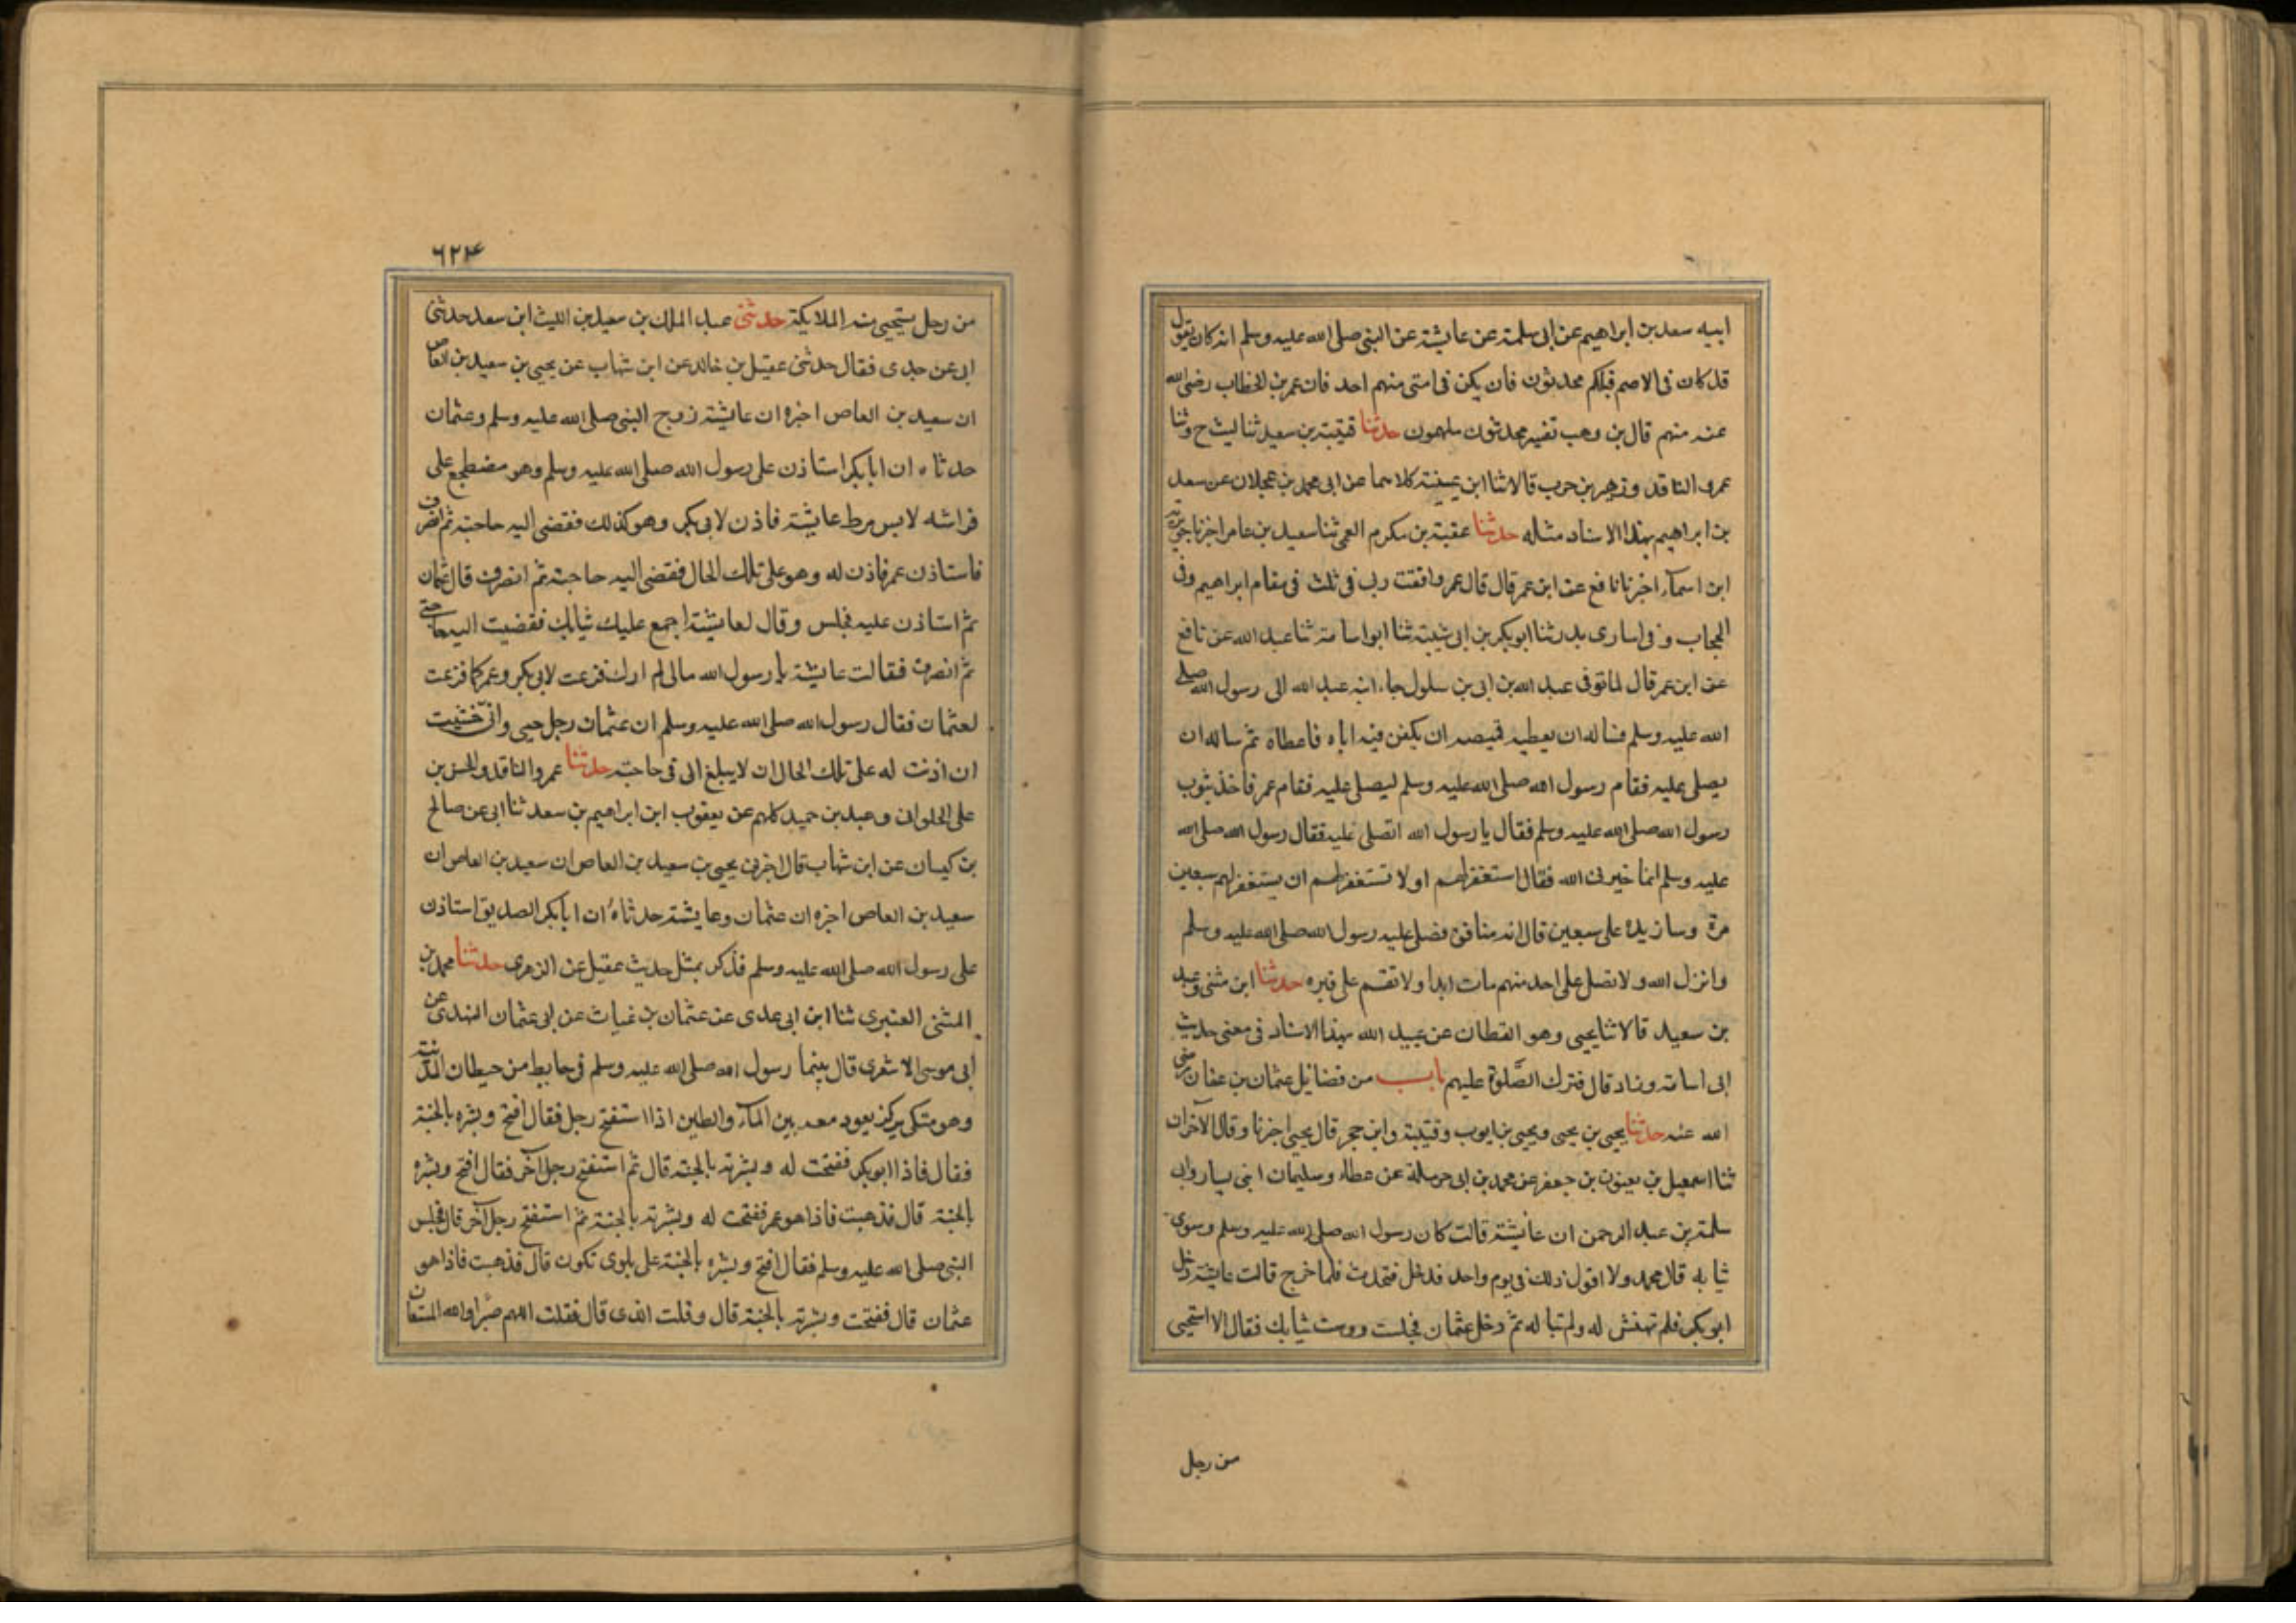 ابيه سعد بن ابراهيم عن ابى سلمة عن عايشة عن النبى صلى الله عليه وسلم انه كان يقول
قد كان فى الامم قبلكم محدثون فان يكن فى امتى منهم احد فان عمر بن الخطاب رضى الله
عنه منهم قال بن وهب تفسير محدثون ملهمون حدثنا قتيبة بن سعيد ثنا ليث ح وثنا
عمرو الناقد وزهير بن حرب قالا ثنا ابن عيينة كلاهما عن ابى محمد بن عجلان عن سعد
بن ابراهيم بهذا الاسناد مثله حدثنا عقبة بن مكرم العمى ثنا سعيد بن عامر اخبرنا جويرية
ابن اسمآء اخبرنا نافع عن ابن عمر قال قال عمر وافقت ربى فى ثلث فى مقام ابراهيم وفى
الحجاب وفى اسارى بدر ثنا ابو بكر بن ابى شيبة ثنا ابو اسامة ثنا عبد الله عن نافع
عن ابن عمر قال لما توفى عبد الله بن ابى بن سلول جاء ابنه عبد الله الى رسول الله صلى
الله عليه وسلم فساله ان يعطيه قميصه ان يكفن فيه اباه فاعطاه ثم ساله ان
يصلى عليه فقام رسول الله صلى الله عليه وسلم ليصلى عليه فقام عمر فاخذ بثوب
رسول الله صلى الله عليه وسلم فقال يا رسول الله اتصلى عليه فقال رسول الله صلى الله
عليه وسلم انما خيرنى الله فقال استغفر لهم او لا تستغفر لهم ان يستغفر لهم سبعين
مرة وسازيده على سبعين قال انه منافق فصلى عليه رسول الله صلى الله عليه وسلم
وانزل الله ولا تصل على احد منهم مات ابدا ولا تقم على قبره حدثنا ابن مثنى وعبيد
بن سعيد قالا ثنا يحيى وهو القطان عن عبيد الله بهذا الاسناد فى معنى حديث
ابى اسامة وزاد قال فترك الصَّلوة عليهم باب من فضائل عثمان بن عفان رضى
الله عنه حدثنا يحيى بن يحيى ويحيى بن ايوب وقتيبة وابن حجر قال يحيى اخبرنا وقال الآخران
ثنا اسمعيل بن يعنون بن جعفر عن محمد بن ابى حرملة عن عطاء وسليمان ابنى يسار وابى
سلمة بن عبد الرحمن ان عايشة قالت كان رسول الله صلى الله عليه وسلم وسوى
ثيابه قال محمد ولا اقول ذلك فى يوم واحد فدخل فتحدث فلما خرج قالت عايشة دخل
ابو بكر فلم تهتش له ولم تباله ثم دخل عثمان فجلست وسويت ثيابك فقال الا استحيى
من رجل
٦٢٤
من رجل يستحيى منه الملايكة حدثنى عبد الملك بن سعيد بن الليث ابن سعد حدثنى
ابى عن جدى فقال حدثنى عقيل بن خالد عن ابن شهاب عن يحيى بن سعيد بن العاص
ان سعيد بن العاص اخبره ان عايشة زوج النبى صلى الله عليه وسلم وعثمان
حدثاه ان ابا بكر استاذن على رسول الله صلى الله عليه وسلم وهو مضطجع على
فراشه لابس مرط عايشة فاذن لابى بكر وهو كذلك فقضى اليه حاجته ثم انصرف
فاستاذن عمر فاذن له وهو على تلك الحال فقضى اليه حاجته ثم انصرف قال عثمان
ثم استاذن عليه فجلس وقال لعايشة اجمع عليك ثيابك فقضيت اليه حاجتى
ثم انصرف فقالت عايشة يا رسول الله مالى لم ارك فزعت لابى بكر وعمر كما فزعت
لعثمان فقال رسول الله صلى الله عليه وسلم ان عثمان رجل حيى وانّى خشيت
ان اذنت له على تلك الحال ان لا يبلغ الى فى حاجته حدثنا عمرو الناقد والحسن بن
على الحلوانى وعبد بن حميد كلهم عن يعقوب ابن ابراهيم بن سعد ثنا ابى عن صالح
بن كيسان عن ابن شهاب قال اخبرنى يحيى بن سعيد بن العاص ان سعيد بن العاص ان
سعيد بن العاص اخبره ان عثمان وعايشة حدثاه ان ابا بكر الصديق استاذن
على رسول الله صلى الله عليه وسلم فذكر بمثل حديث عقيل عن الزهرى حدثنا محمد بن
المثنى العنبرى ثنا ابن ابى عدى عن عثمان بن غياث عن ابى عثمان النهدى عن
ابى موسى الاشعرى قال بينما رسول الله صلى الله عليه وسلم فى حايط من حيطان المدينة
وهو متكى يركز بعود معه بين المآء والطين اذا استفتح رجل فقال افتح وبشره بالجنة
فقال فاذا ابو بكر ففتحت له وبشرته بالجنة قال ثم استفتح رجل آخر فقال افتح وبشره
بالجنة قال فذهبت فاذا هو عمر ففتحت له وبشرته بالجنة ثم استفتح رجل آخر قال فجلس
النبى صلى الله عليه وسلم فقال افتح وبشره بالجنة على بلوى تكون قال فذهبت فاذا هو
عثمان قال ففتحت وبشرته بالجنة قال وقلت الذى قال فقلت اللهم صبرا والله المستعان